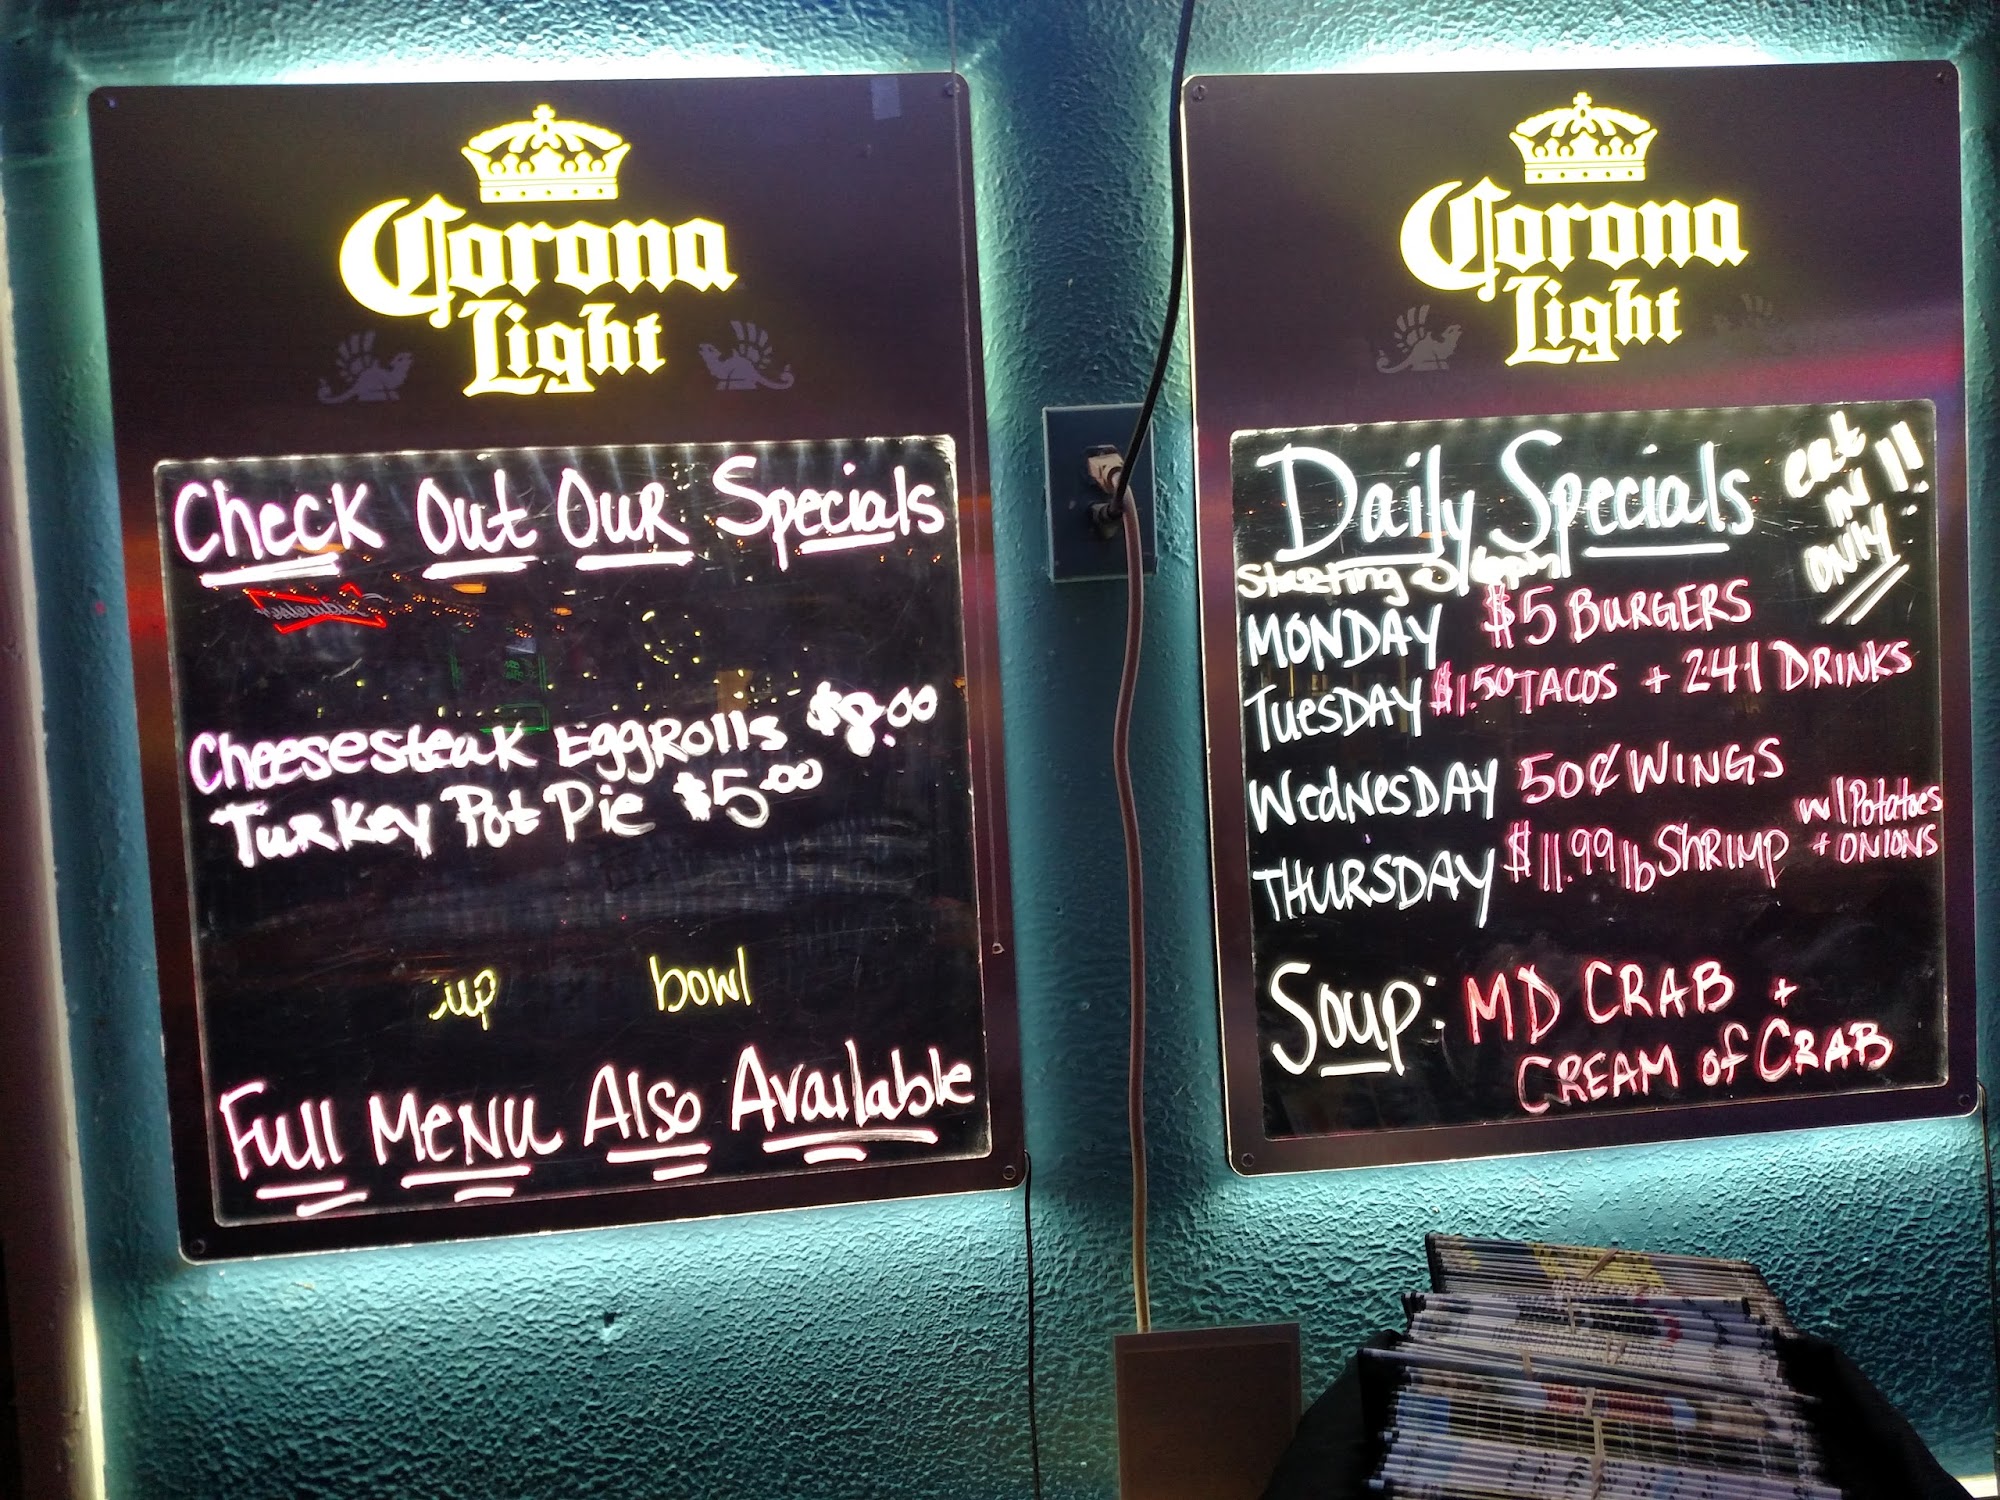 Corona
Light
Check Out Our Specials
Budweiser
Cheesesteak Eggrolls $8.00
Turkey Pot Pie $5.00
up bowl
Full Menu Also Available
Corona
Light
Daily Specials
eat
IN
ONLY!!
Starting @ 6pm
MONDAY $5 BURGERS
TuesDAY $1.50 TACOS + 241 DRINKS
WedNesDAY 50¢ WINGS
THURSDAY $11.99 lb SHRIMP w/Potatoes
+ ONIONS
Soup: MD CRAB +
CREAM of CRAB